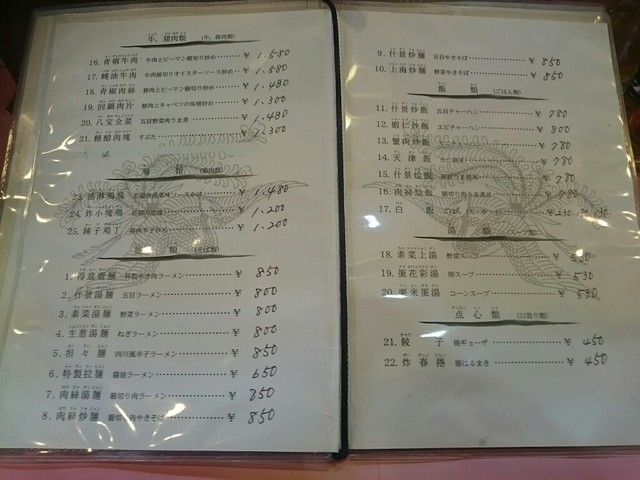 牛、猪肉類 (牛、豚肉類)
16. 青椒牛肉 牛肉とピーマン細切り炒め ¥ 1.580
17. 蠔油牛肉 牛肉細切りオイスターソース炒め ¥ 1.580
18. 青椒肉絲 豚肉とピーマン細切り炒め ¥ 1.480
19. 回鍋肉片 豚肉とキャベツの味噌炒め ¥ 1.300
20. 八宝全菜 五目野菜肉うま煮 ¥ 1.480
21. 糖醋肉塊 すぶた ¥ 1.300
類 (鶏肉類)
23. 油淋鶏塊 ¥ 1.480
24. 炸小塊鶏 ¥ 1.200
25. 辣子鶏丁 ¥ 1.200
麺類 (そば類)
1. 得意齋麺 特製やき肉ラーメン ¥ 850
2. 什景湯麺 五目ラーメン ¥ 800
3. 素菜湯麺 野菜ラーメン ¥ 800
4. 生葱湯麺 ねぎラーメン ¥ 800
5. 担々麺 四川風辛子ラーメン ¥ 850
6. 特製拉麺 醤油ラーメン ¥ 650
7. 肉絲湯麺 細切り肉ラーメン ¥ 850
8. 肉絲炒麺 細切り肉やきそば ¥ 850
9. 什景炒麺 五目やきそば ¥ 850
10. 上海炒麺 野菜やきそば ¥ 850
飯類 (ごはん類)
11. 什景炒飯 五目チャーハン ¥ 780
12. 蝦仁炒飯 エビチャーハン ¥ 800
13. 蟹肉炒飯 ¥ 780
14. 天津飯 ¥ 780
15. 什景燴飯 ¥ 780
16. 肉絲燴飯 ¥ 780
17. 白飯 ごはん
湯類
18. 素菜上湯 野菜スープ ¥
19. 蛋花彩湯 卵スープ ¥ 530
20. 粟米蛋湯 コーンスープ ¥ 530
点心類 (口取り類)
21. 餃子 焼ギョーザ ¥ 450
22. 炸春捲 揚にるまき ¥ 450